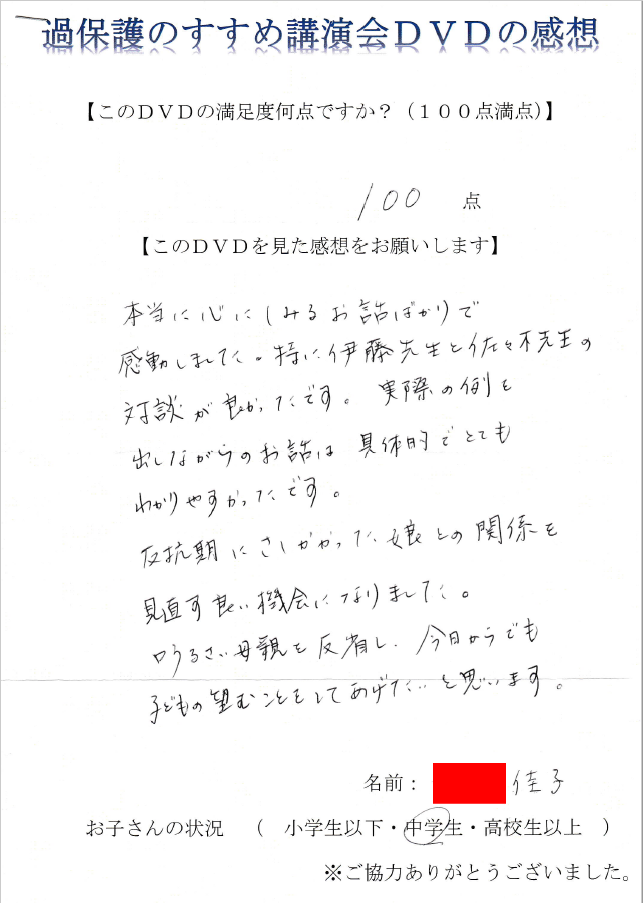 過保護のすすめ講演会ＤＶＤの感想
【このＤＶＤの満足度何点ですか？（１００点満点）】
100 点
【このＤＶＤを見た感想をお願いします】
本当に心にしみるお話ばかりで
感動しました。特に伊藤先生と佐々木先生の
対談が良かったです。実際の例を
出しながらのお話は具体的でとても
わかりやすかったです。
反抗期にさしかかった娘との関係を
見直す良い機会になりました。
口うるさい母親を反省し、今日からでも
子どもの望むことをしてあげたいと思います。
名前： 佳子
お子さんの状況 （ 小学生以下・中学生・高校生以上 ）
※ご協力ありがとうございました。